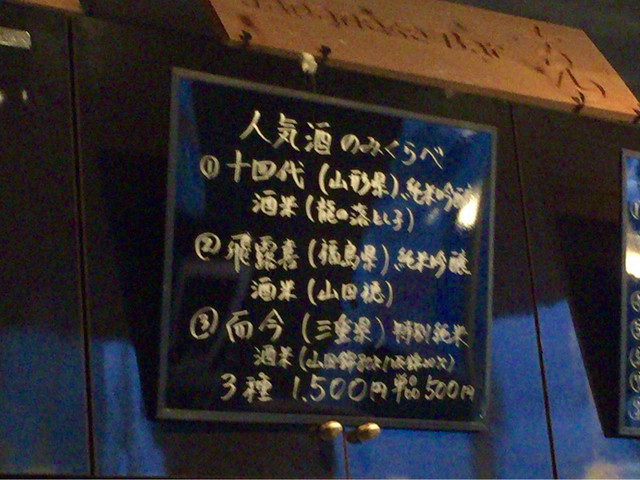 人気酒のみくらべ
① 十四代(山形県)、純米吟醸
酒米(龍の落とし子)
② 飛露喜(福島県)、純米吟醸
酒米(山田穂)
③ 而今(三重県)特別純米
酒米(
3種 1,500円 単品500円